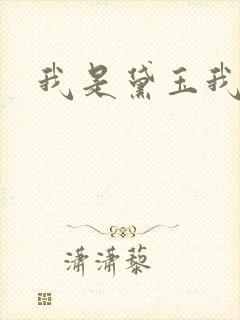 我是黛玉我
潇潇藜